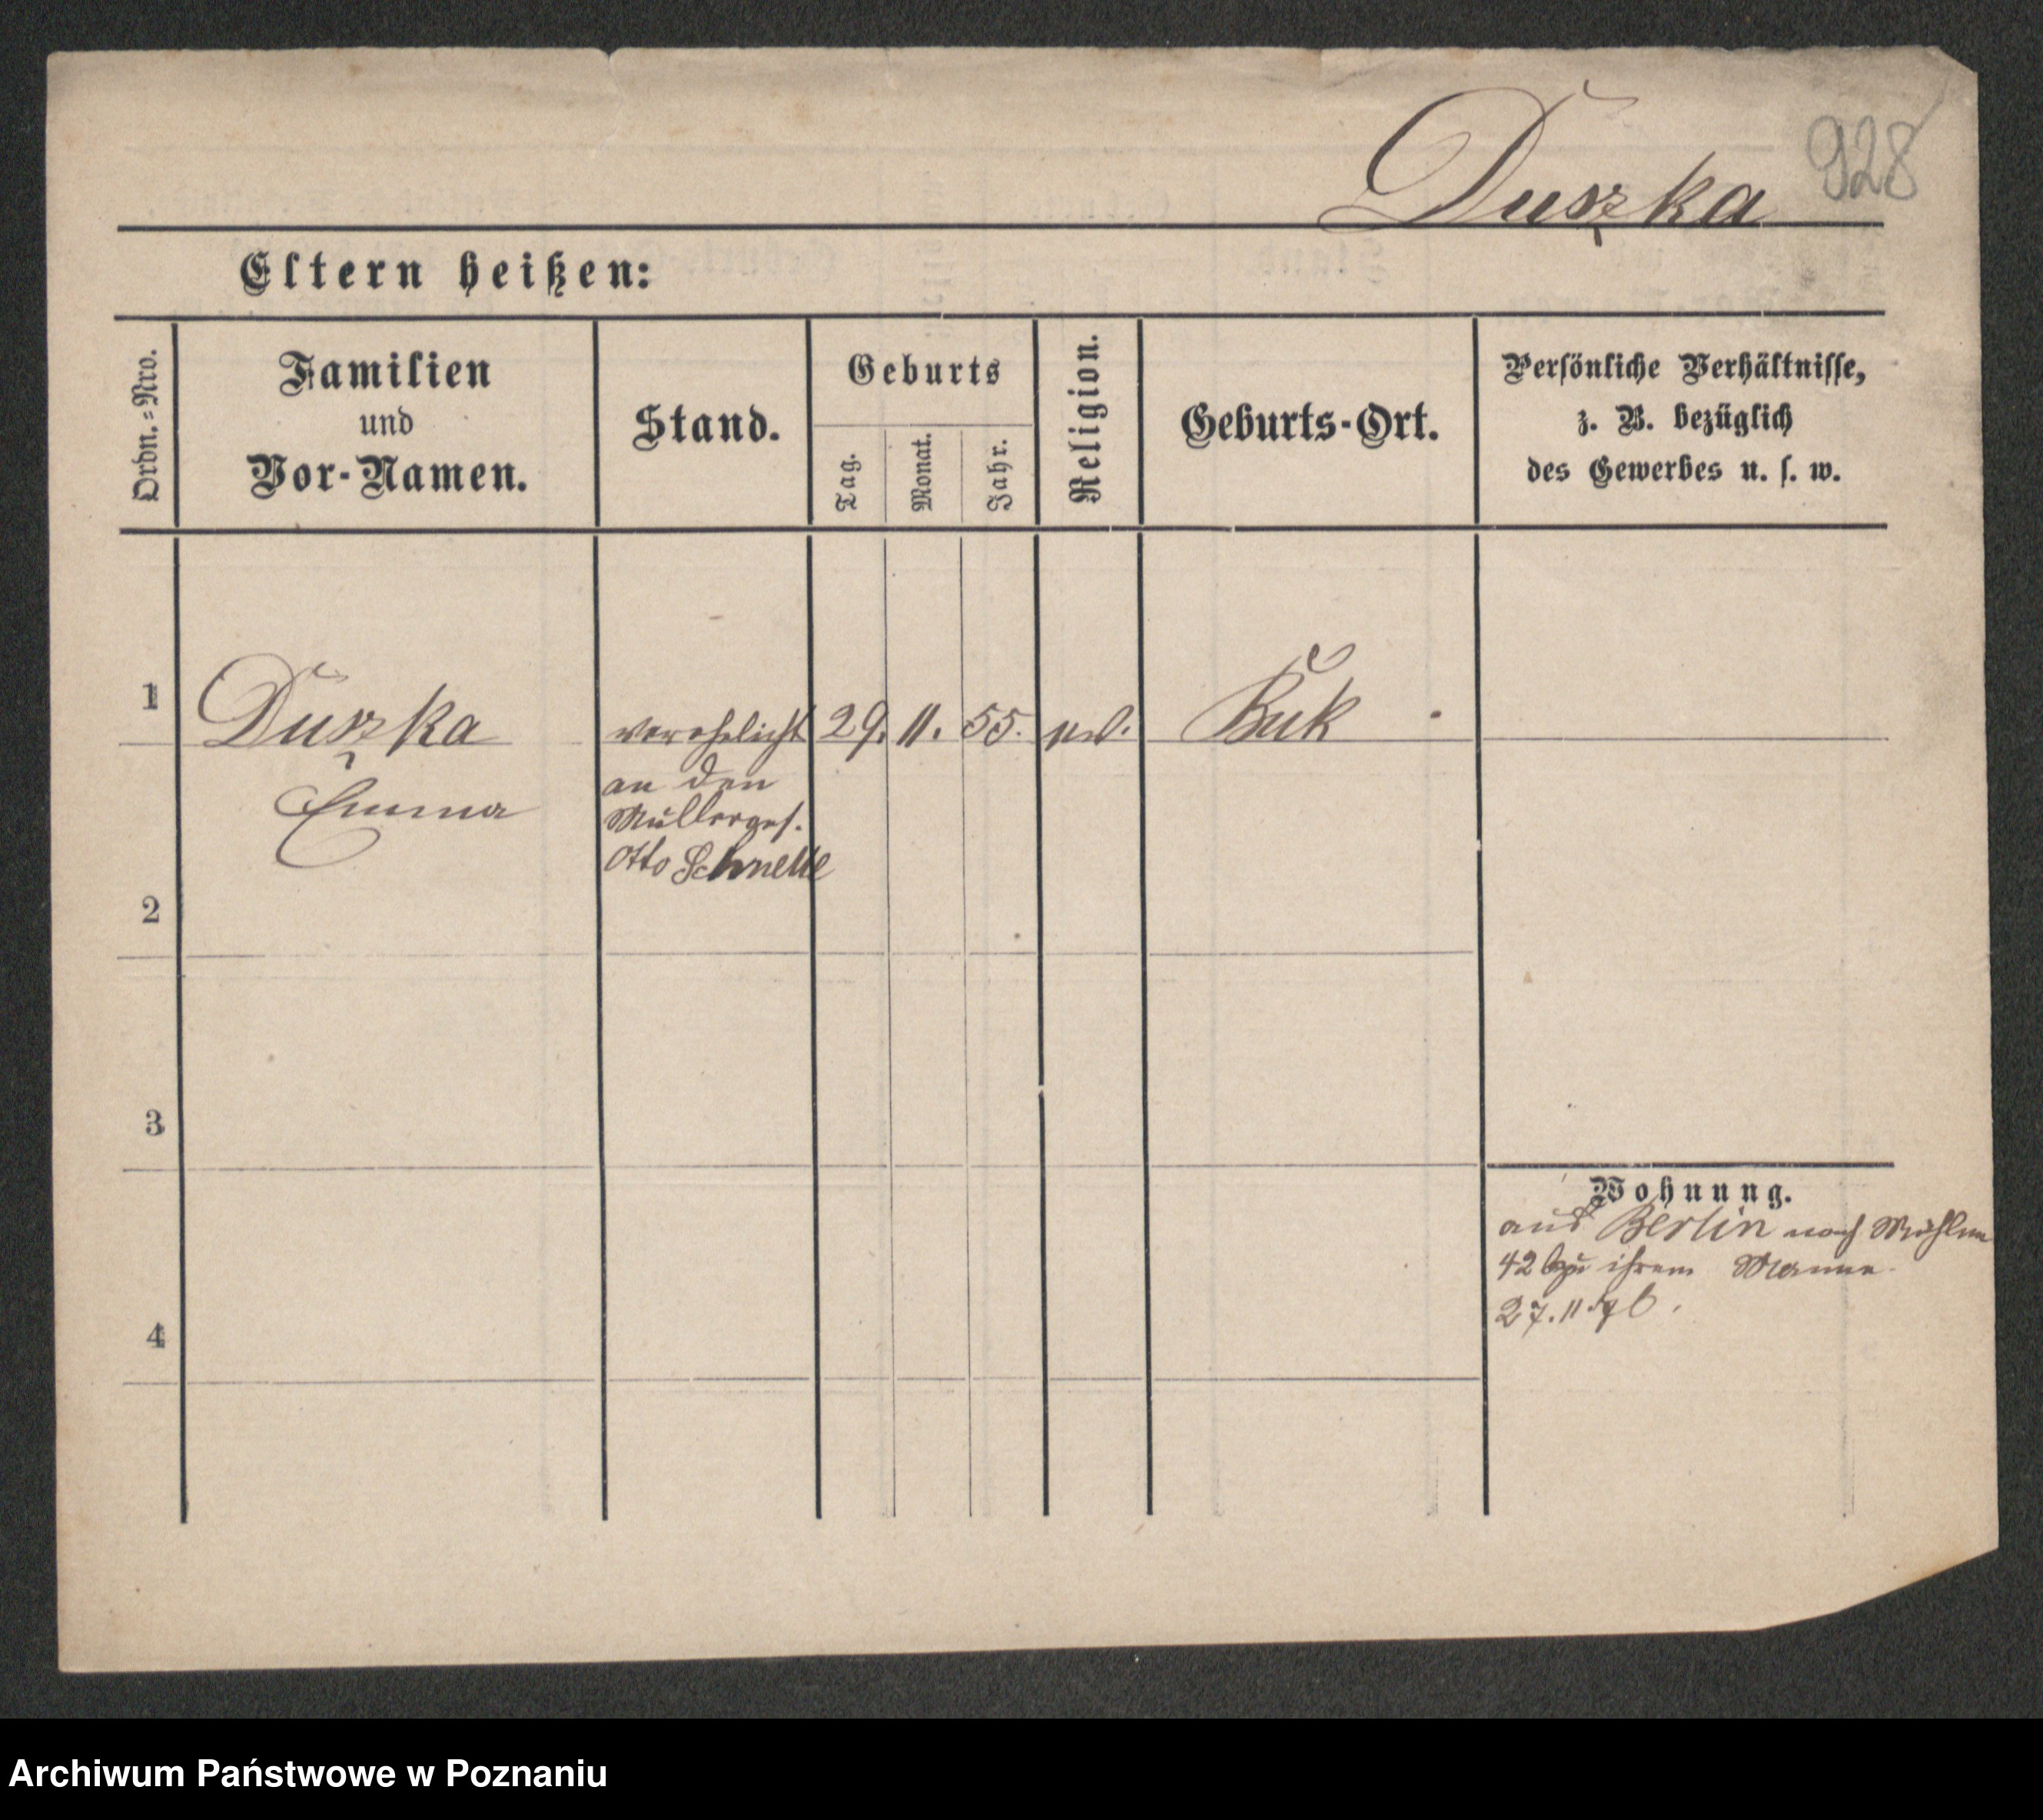 Duszka 928
Eltern heißen:
Ordn.=Nro.
Familien
und
Vor-Namen.
Stand.
Geburts
Tag.
Monat.
Jahr.
Religion.
Geburts-Ort.
Persönliche Verhältnisse,
z. B. bezüglich
des Gewerbes u. s. w.
1 Duszka verehelicht 29. 11. 55. Buk
Emma
an den
Müllerges.
Otto Schnelle
2
3
4
Wohnung.
aus Berlin nach Mühlen
42 zu ihrem Manne
27. 11.
Archiwum Państwowe w Poznaniu